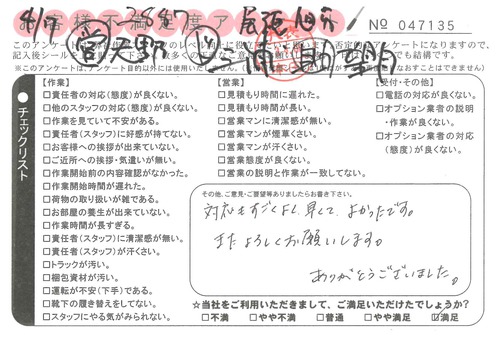 お客様不満足度ア
No 047135
チェックリスト
【作業】
□責任者の対応(態度)が良くない。
□他のスタッフの対応(態度)が良くない。
□作業を見ていて不安がある。
□責任者(スタッフ)に好感が持てない。
□お客様への挨拶が出来ていない。
□ご近所への挨拶・気遣いが無い。
□作業開始前の内容確認がなかった。
□作業開始時間が遅れた。
□荷物の取り扱いが雑である。
□お部屋の養生が出来ていない。
□作業時間が長すぎる。
□責任者(スタッフ)に清潔感が無い。
□責任者(スタッフ)が汗くさい。
□トラックが汚い。
□梱包資材が汚い。
□運転が不安(下手)である。
□靴下の履き替えをしてない。
□スタッフにやる気がみられない。
【営業】
□見積もり時間に遅れた。
□見積もり時間が長い。
□営業マンに清潔感が無い。
□営業マンが煙草くさい。
□営業マンが汗くさい。
□営業態度が良くない。
□営業の説明と作業が一致してない。
【受付・その他】
□電話の対応が良くない。
□オプション業者の説明・作業が良くない。
□オプション業者の対応(態度)が良くない。
その他、ご意見・ご要望等ありましたらお書き下さい。
対応もすごくよく、早くて、よかったです。
またよろしくお願いします。
ありがとうございました。
☆当社をご利用いただきまして、ご満足いただけたでしょうか?
□不満 □やや不満 □普通 □やや満足 ☑満足